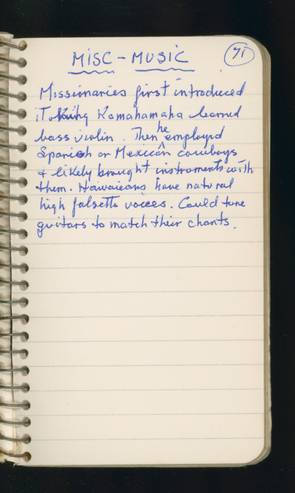 MISC - MUSIC
71
Missionaries first introduced
it. King Kamahamaha learned
bass violin. Then he employed
Spanish or Mexican cowboys
& likely brought instruments with
them. Hawaiians have natural
high falsetto voices. Could tune
guitars to match their chants.